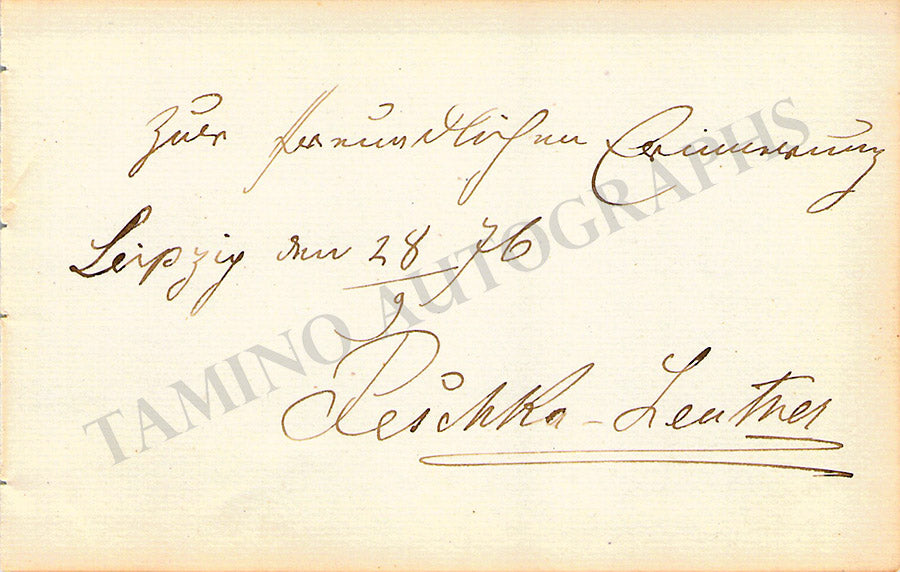 Zur freundlichen Erinnerung
Leipzig den 28/9 76
Peschka-Leutner
TAMINO AUTOGRAPHS